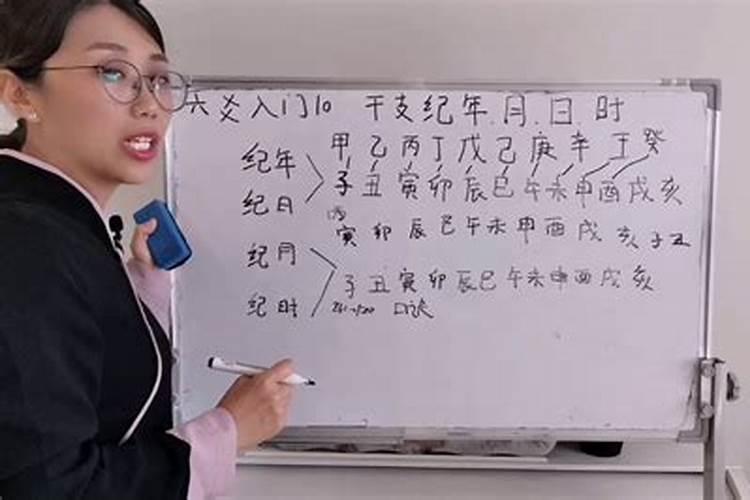 六爻入门10 干支纪年.月.日.时
甲乙丙丁戊己庚辛壬癸
纪年
子丑寅卯辰巳午未申酉戌亥
纪日
丙
寅卯辰巳午未申酉戌亥子丑
纪月
子丑寅卯辰巳午未申酉戌亥
纪时
口诀